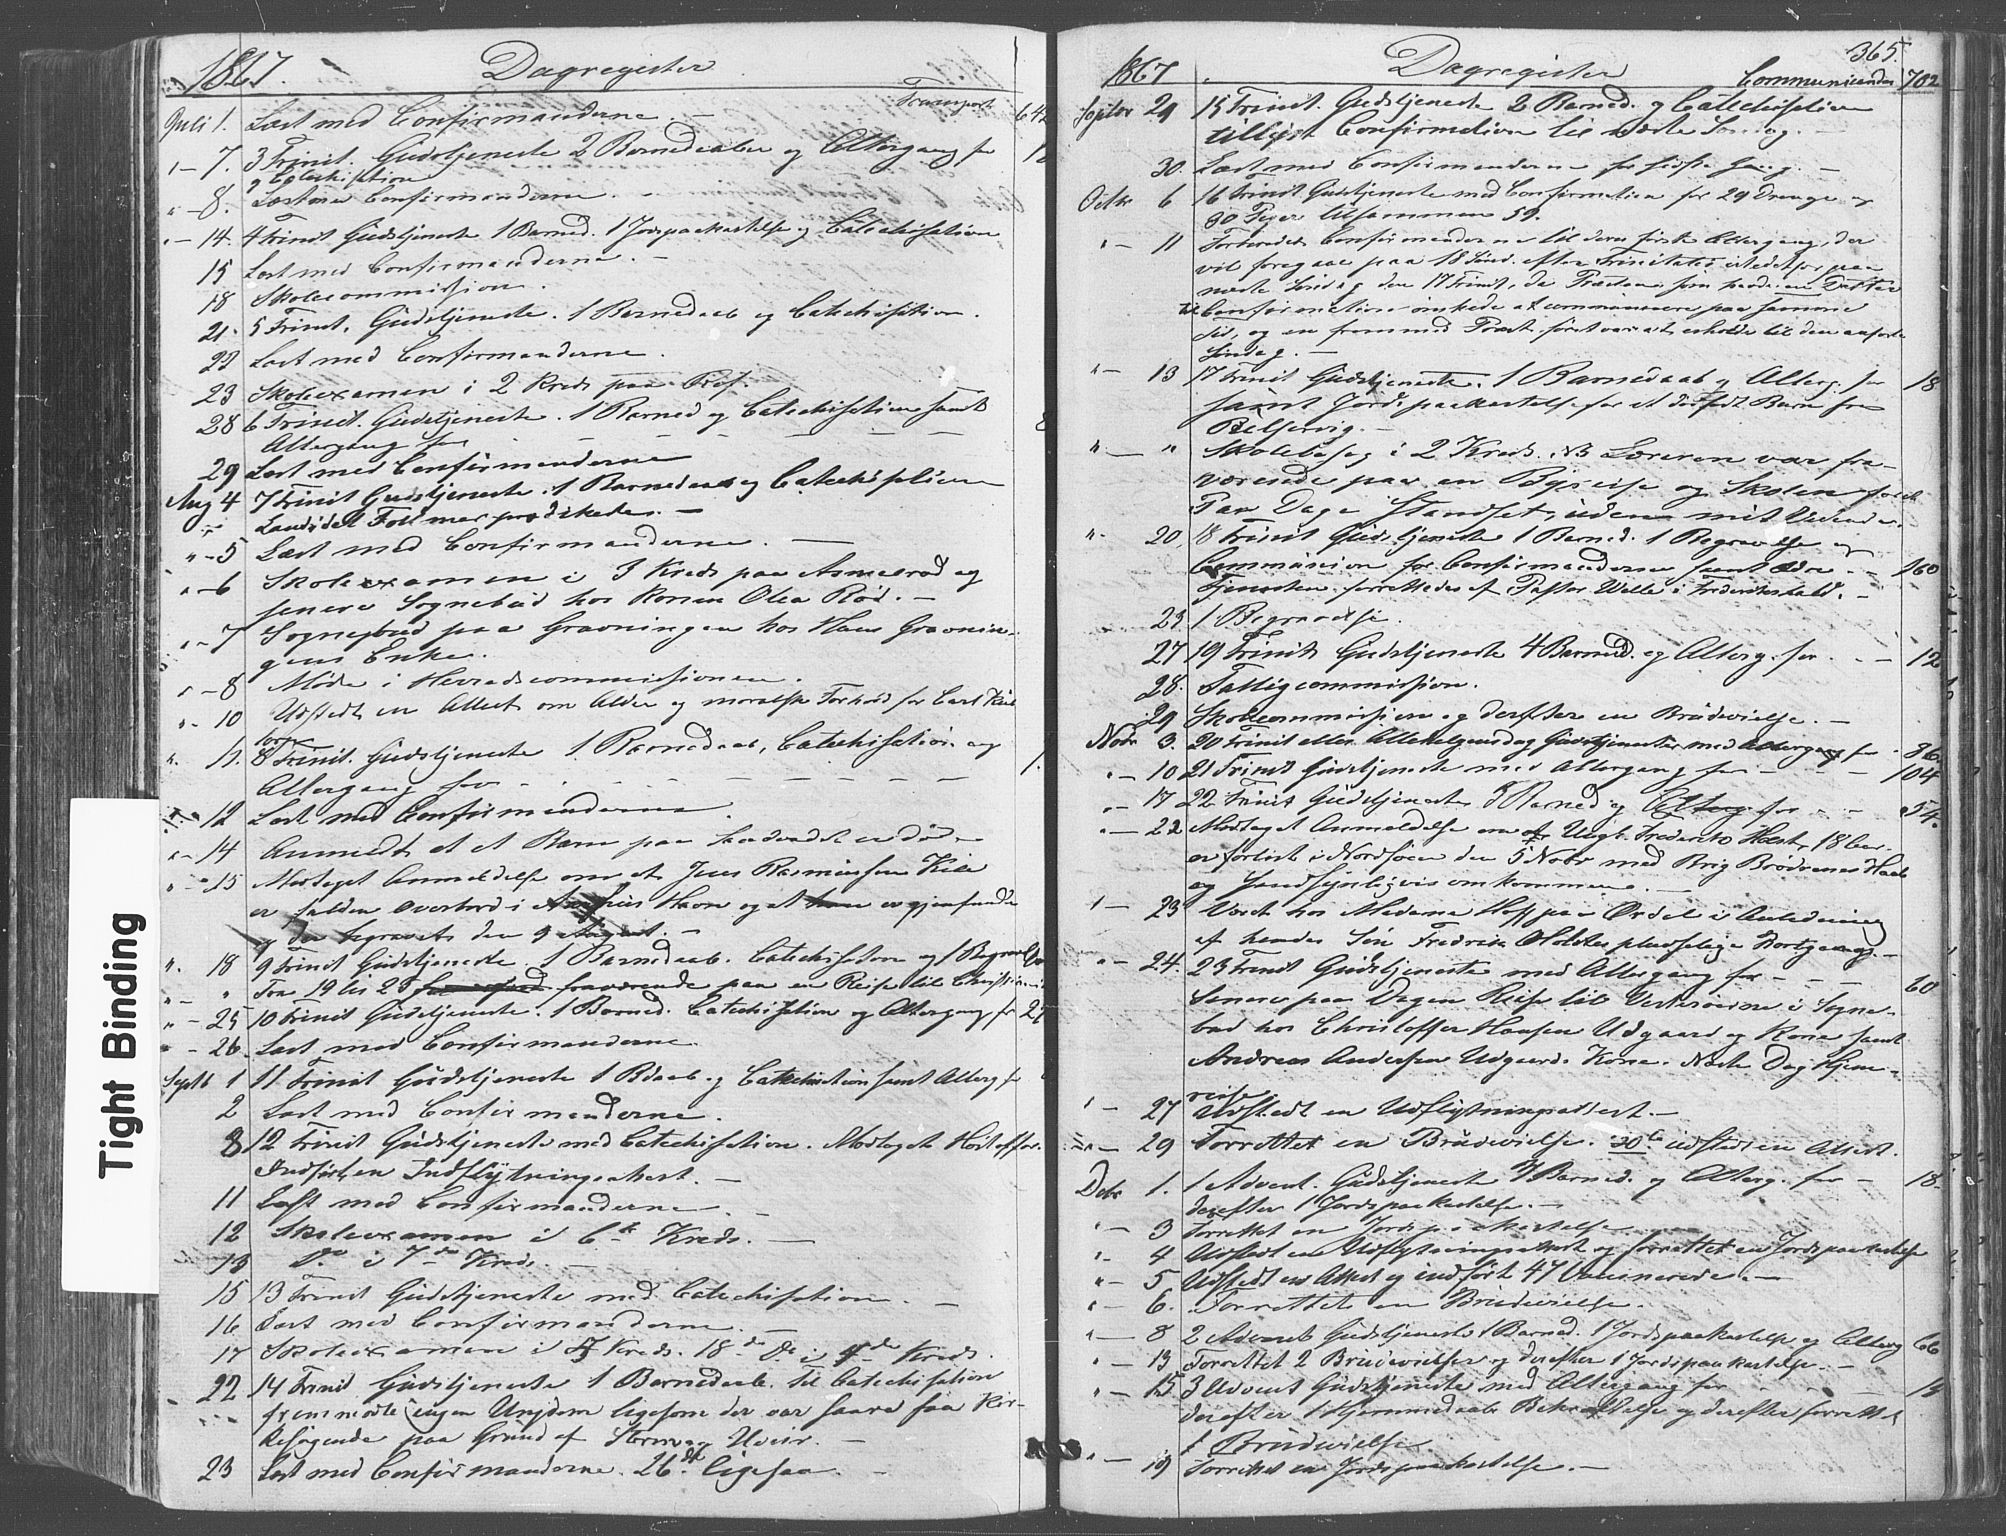 1867. Dagregister
Transport 642
Juli 1. Læst med Confirmanderne. —
" — 7. 3 Trinit. Gudstjeneste 2 Barnedaabe og Altergang for
og Catechisation
" — 8. Læst med Confirmanderne. —
" — 14. 4 Trinit Gudstjeneste 1 Barned. 1 Jordpaakastelse og Catechisation
15 Læst med Confirmanderne. —
18 Skolecommission.
21. 5 Trinit. Gudstjeneste. 1 Barnedaab og Catechisation.
22 Læst med Confirmanderne.
23 Skoleexamen i 2 Kreds paa
28 6 Trinit. Gudstjeneste. 1 Barned og Catechisation samt 8
Altergang for
29 Læst med Confirmanderne
Aug 4 7 Trinit Gudstjeneste. 1 Barnedaab og Catechisation
prædikede. —
" — 5 Læst med Confirmanderne. —
" — 6 Skoleexamen i 3 Kreds paa Asmalrød og
senere Sognebud hos Konen Olea Rød. —
" — 7 Sognebud paa Gravningen hos Hans Gravnin-
gens Enke.
" — 8 Møde i Herredscommissionen.
" — 10 Udstedt en Attest om Alder og moralsk Forhold for Carl
" 11. 8 Trinit. Gudstjeneste 1 Barnedaab, Catechisation og
Altergang for
" — 12 Læst med Confirmanderne.
" — 14 Anmeldt at et Barn paa er død —
" — " 15 Modtaget Anmeldelse om at Jens Rasmussen Kile
er falden overbord i Havn og at er gjenfunden
og der begravet den 9 August. —
" 18 9 Trinit Gudstjeneste. 1 Barnedaab. Catechisation og 1 Begravelse
" — " Fra 19 til 25 fraværende paa en Reise til Christiania
" — 25 10 Trinit Gudstjeneste. 1 Barned. Catechisation og Altergang for
" — 26. Læst med Confirmanderne.
Septb 1 11 Trinit Gudstjeneste 1 Bdaab og Catechisation samt Alterg for
2 Læst med Confirmanderne.
8 12 Trinit Gudstjeneste med Catechisation. Modtaget Høstoffer.
Indført en Indflytningsattest. —
11 Læst med Confirmanderne. —
12 Skoleexamen i 6te Kreds. —
13 Do i 7de Kreds. —
15 13 Trinit Gudstjeneste med Catechisation. —
16 Læst med Confirmanderne. —
17 Skoleexamen i 5 Kreds. 18de Do i 4de Kreds.
22 14 Trinit Gudstjeneste 1 Barnedaab. Til Catechisation
fremmødte ingen Ungdom ligesom der var saare faa Kir-
kesøgende paa Grund af Storm og Uveir. —
23 Læst med Confirmanderne. 26de ligesaa. —
Tight Binding
1867. Dagregister 365.
Communicender 702
Septbr 29 15 Trinit. Gudstjeneste 2 Barned. og Catechisation
tillyst Confirmation til næste Søndag. —
30. Læst med Confirmanderne for sidste Gang. —
Octbr 6 16 Trinit Gudstjeneste med Confirmation for 29 Drenge og
30 Piger tilsammen 59.
" — 11 Forberedet Confirmanderne til deres første Altergang, der
vil foregaae paa 18 Sønd. efter Trinitatis istedetfor paa
næste Søndag den 17 Trinit, da Præsten som havde en Datter
til Confirmation ønskede at communicere paa samme
Tid, og en fremmed Præst først var at erholde til den anførte
Søndag. —
" — 13 17 Trinit Gudstjeneste. 1 Barnedaab og Alterg. for 18
samt Jordspaakastelse for et dødfødt Barn fra
" — " Skolebesøg i 2 Kreds. NB Læreren var fra-
værende paa en Byreise og Skolen
Par Dage Standset, uden mit Vidende.
" 20 18 Trinit Gudstjeneste 1 Barned. 1 Begravelse og
Communion for Confirmanderne samt Ældre — 160
Tjenesten forrettedes af Pastor Welle i Frederikshald. —
23 1 Begravelse.
27 19 Trinit Gudstjeneste 4 Barned. og Alterg. for — 12
28. Fattigcommission.
29 Skolecommission og derefter en Brudevielse. —
Novbr 3. 20 Trinit eller Allehelgensdag Gudstjeneste med Altergang for 86
" — 10 21 Trinit Gudstjeneste med Altergang for — 104
" — 17 22 Trinit Gudstjeneste Barned og Alterg for — 54.
" — 22 Modtaget Anmeldelse om at Ungk. Frederik Holst, 18 Aar.
er forlist i Nordsøen den 5 Novbr med Brig Brødrenes Haab
og sandsynligvis omkommen. —
" — 23 Været hos Madame Hoff paa Ordal i Anledning
af hendes Søn Fredrik Holsts pludselige Bortgang —
" — 24. 23 Trinit Gudstjeneste med Altergang for — 60
Senere paa Dagen Reise til Vesterøerne i Sogne-
bud hos Christoffer Hansen Udgaard og Kone samt
Andreas Andersen Udgaards Kone. Næste Dag Hjem-
reise
" — 27 Udstedt en Udflytningsattest. —
" — 29 Forrettet en Brudevielse. 30te udstedt en Attest.
Debr 1. 1 Advent. Gudstjeneste Barned. og Alterg. for — 18.
derefter 1 Jordspaakastelse. —
" — 3 Forrettet en Jordspaakastelse
" — 4 Udstedt en Udflytningsattest og forrettet en Jordspaakastelse
" — 5 Udstedt en Attest og indført 47 Vaccinerede. —
" — 6. Forrettet en Brudevielse.
" — 8 2 Advent Gudstjeneste 1 Barned. 1 Jordspaakastelse og Alterg 66
" — 13 Forrettet 2 Brudevielser og derefter 1 Jordspaakastelse. —
" — 15 3 Advent Gudstjeneste med Altergang for
derefter 1 Hjemmedaabs Bekræftelse og derefter forrettet
1 Brudevielse.
" — 19 Forrettet en Jordspaakastelse. —